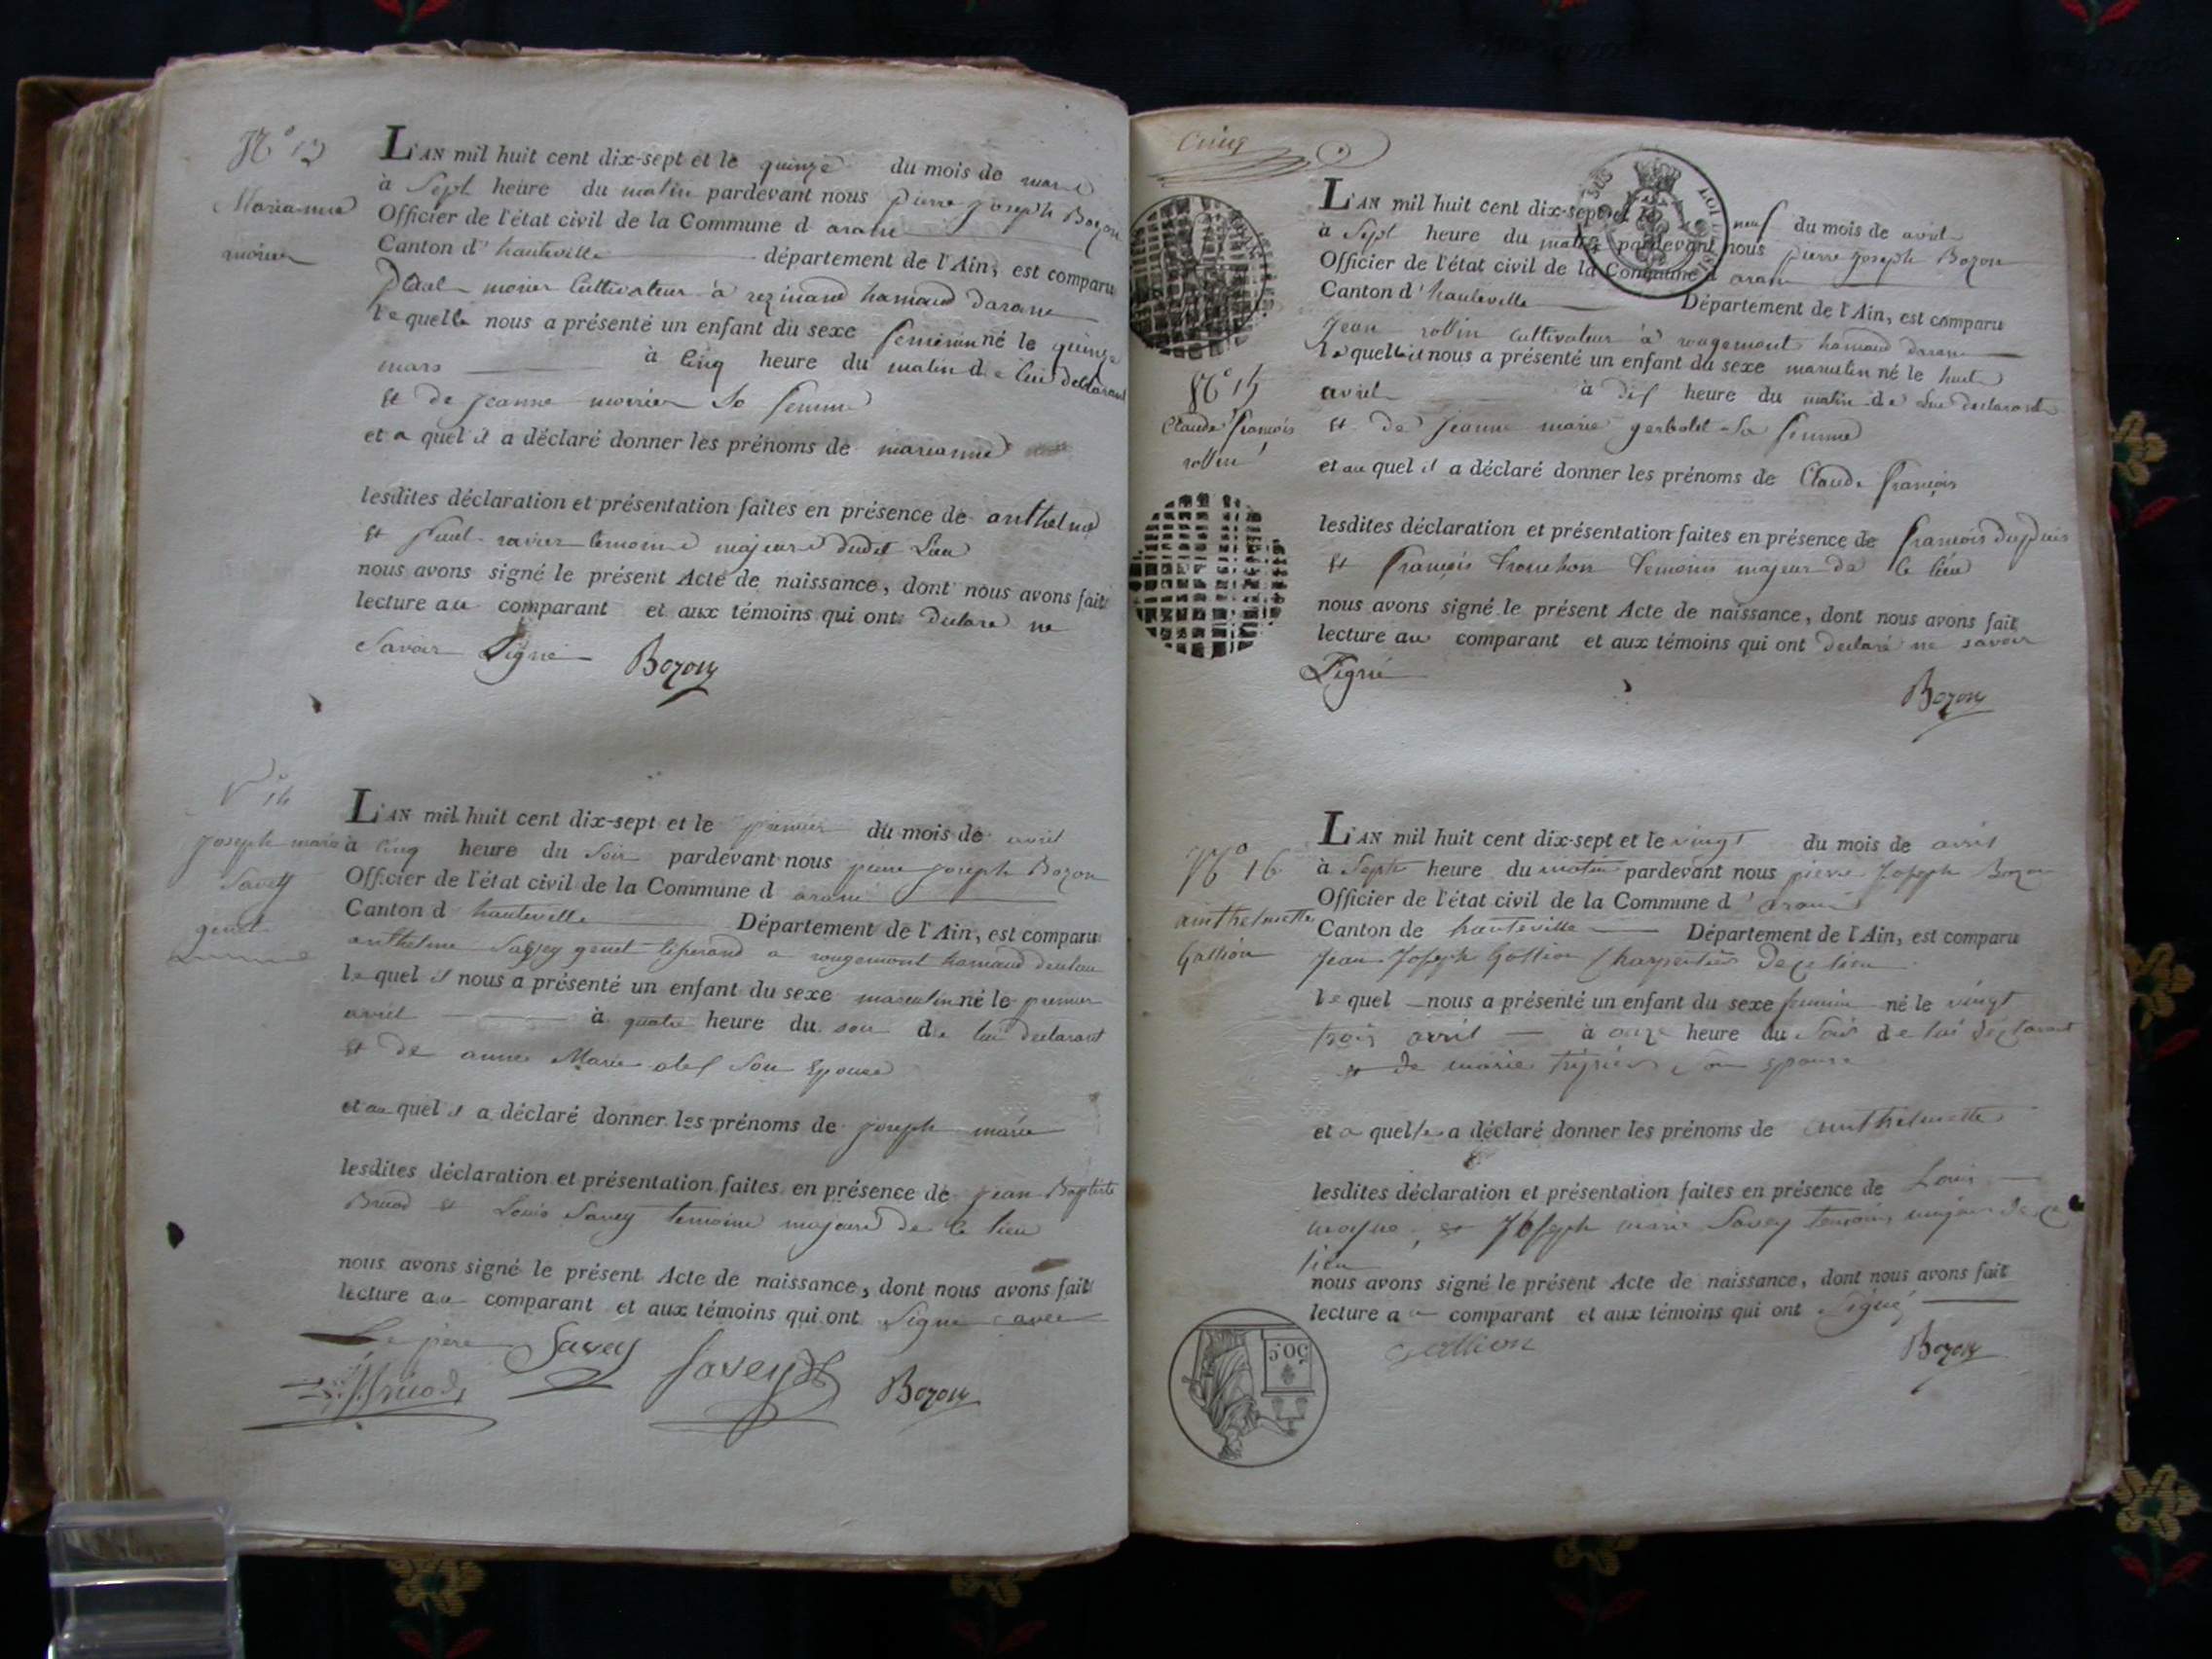 N° 13
Marianne
L'AN mil huit cent dix-sept et le quinze du mois de mars
à Sept heure du matin pardevant nous pierre joseph Bozon
Officier de l'état civil de la Commune d arane
Canton d' hauteville département de l'Ain, est comparu
cultivateur à hamaud darane
lequelle nous a présenté un enfant du sexe feminin né le quinze
mars à cinq heure du matin de lui declarant
et de jeanne sa femme
et a quel il a déclaré donner les prénoms de marianne
lesdites déclaration et présentation faites en présence de anthelme
et majeure dudit Lieu
nous avons signé le présent Acte de naissance, dont nous avons fait
lecture au comparant et aux témoins qui ont declaré ne
Savoir Signé Bozon
N° 14
joseph marie
Savey
genet
L'AN mil huit cent dix-sept et le premier du mois de avril
à cinq heure du soir pardevant nous pierre joseph Bozon
Officier de l'état civil de la Commune d arane
Canton d hauteville Département de l'Ain, est comparu
anthelme Savey genet a rougemont hamaud
lequel il nous a présenté un enfant du sexe masculin né le premier
avril à quatre heure du soir de lui declarant
et de anne Marie son Epouse
et au quel il a déclaré donner les prénoms de joseph marie
lesdites déclaration et présentation faites en présence de jean Baptiste
Bruod et Louis Savey temoins majeure de ce lieu
nous avons signé le présent Acte de naissance, dont nous avons fait
lecture au comparant et aux témoins qui ont Signé avec
Le père Savey Savey Bozon
Bruod
cinq
N° 15
Claude françois
rollin
L'AN mil huit cent dix-sept et le neuf du mois de avril
à Sept heure du matin pardevant nous pierre joseph Bozon
Officier de l'état civil de la Commune d arane
Canton d' hauteville Département de l'Ain, est comparu
Jean rollin cultivateur à rougemont hamaud darane
lequel il nous a présenté un enfant du sexe masculin né le huit
avril à dix heure du matin de lui declarant
et de jeanne marie gerbolet sa femme
et au quel il a déclaré donner les prénoms de Claude françois
lesdites déclaration et présentation faites en présence de françois dupuis
et françois temoins majeur de ce lieu
nous avons signé le présent Acte de naissance, dont nous avons fait
lecture au comparant et aux témoins qui ont declaré ne savoir
Signé
Bozon
N° 16
anthelmette
Gallion
L'AN mil huit cent dix-sept et le vingt du mois de avril
à Sept heure du matin pardevant nous pierre Joseph Bozon
Officier de l'état civil de la Commune d' arane
Canton de hauteville Département de l'Ain, est comparu
Jean Joseph Gallion Charpentier de ce lieu
lequel nous a présenté un enfant du sexe feminin né le vingt
trois avril à onze heure du soir de lui declarant
et de marie son epouse
et a quelle a déclaré donner les prénoms de anthelmette
lesdites déclaration et présentation faites en présence de Louis
et Joseph marie Savey temoins majeur de ce
lieu
nous avons signé le présent Acte de naissance, dont nous avons fait
lecture au comparant et aux témoins qui ont Signé
gallion Bozon
50C